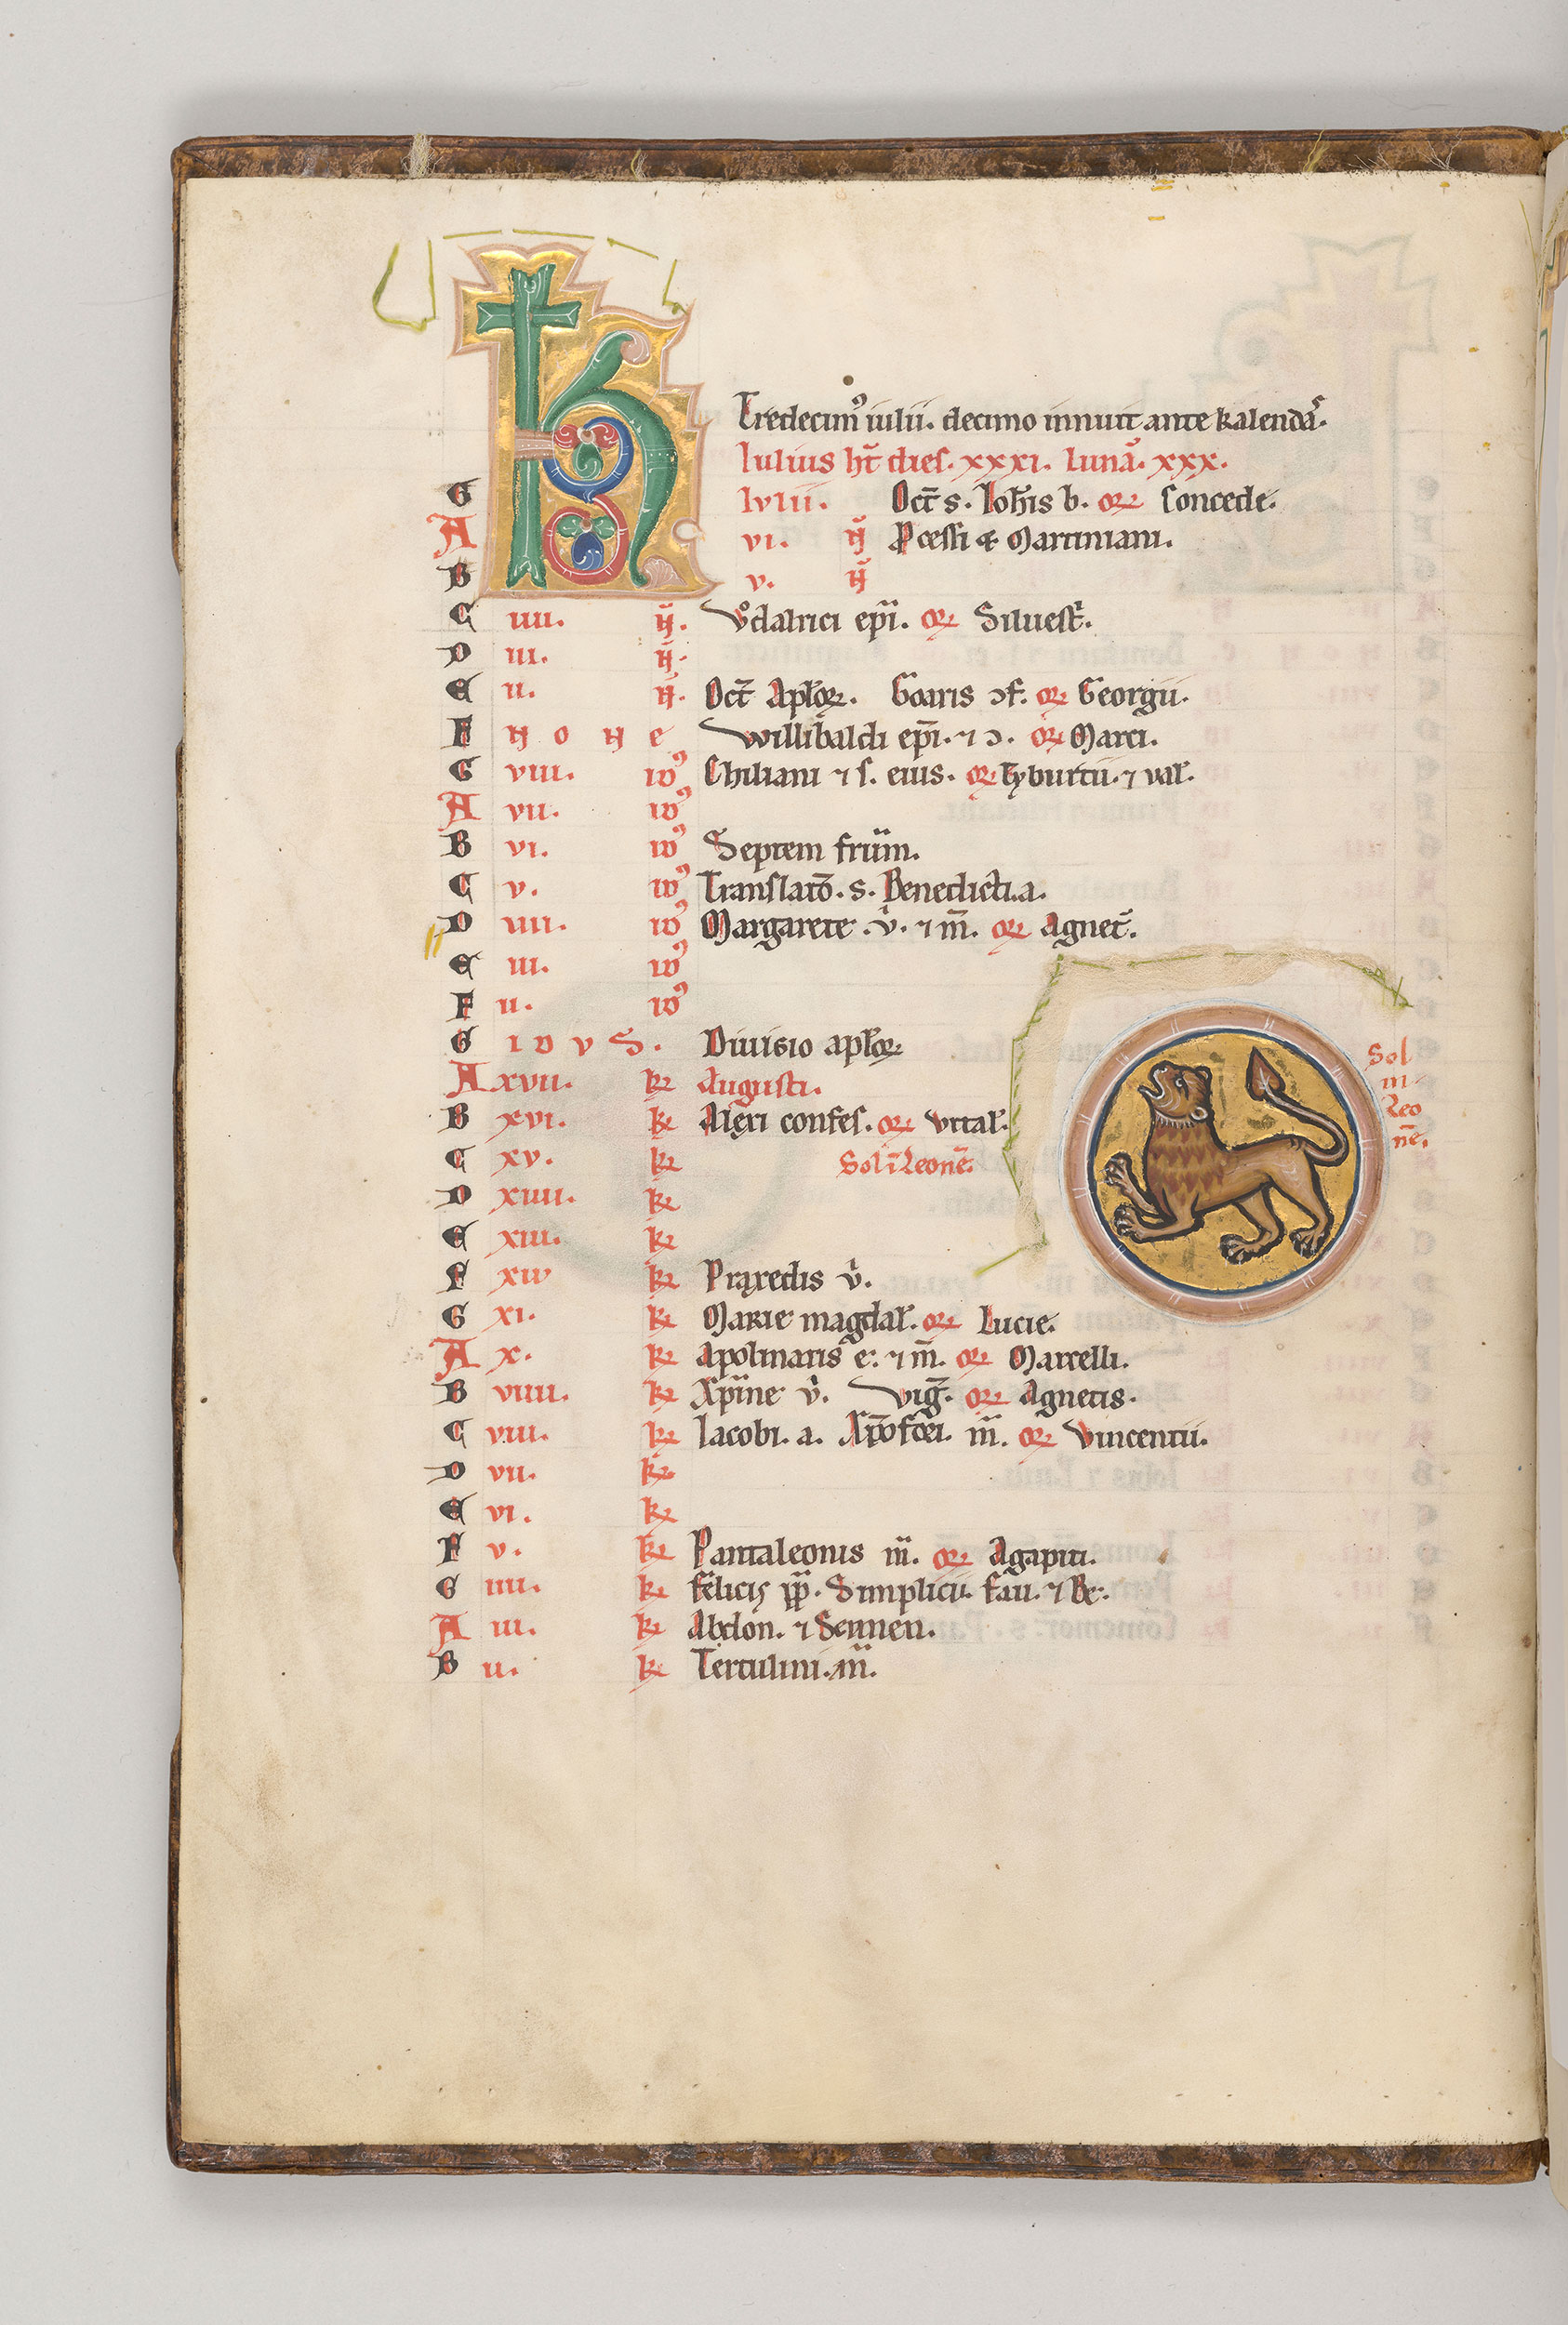 KL
Tredecim⁹ iulii. decimo innuit ante kalendas̄.
Iulius ht̄ dies. xxxi. Lunā. xxx.
G Iulii. Oct̄ s. Ioh̄is b. or̄ Concede.
A vi. N̄ P̄cessi & Martiniani.
B v. N̄
C iiii. N̄. Vͦdalrici ep̄i. or̄ Siluest̄.
D iii. N̄.
E ii. N̄. Oct̄ Apl̄oꝝ. Goaris ↄf. or̄ Georgii.
F None Willibaldi ep̄i. ⁊ ↄ. or̄ Marci.
G viii. id⁹ Chiliani ⁊ s. eius. or̄ Tyburtii. ⁊ val̄.
A vii. id⁹
B vi. id⁹ Septem fr̄um.
C v. id⁹ Translatō. s. Benedicti. a.
D iiii. id⁹ Margarete. v̄. ⁊ m̄. or̄ Agnet̄.
E iii. id⁹
F ii. id⁹
G IDVS. Diuisio apl̄oꝝ
A xvii. kl̄ Augusti.
B xvi. kl̄ Alexi confes. or̄ vital̄.
C xv. kl̄ Sol ī Leonē.
D xiiii. kl̄
E xiii. kl̄
F xii kl̄ Praxedis v̄.
G xi. kl̄ Marie magdal̄. or̄ Lucie.
A x. kl̄ Apolinaris e. ⁊ m̄. or̄ Marcelli.
B viiii. kl̄ Xp̄ine v̄. Viḡ. or̄ Agnetis.
C viii. kl̄ Iacobi. a. Xp̄ofori. m̄. or̄ Vincentii.
D vii. kl̄
E vi. kl̄
F v. kl̄ Pantaleonis m̄. or̄ Agapiti.
G iiii. kl̄ Felicis pp̄. Simplicii. Fau. ⁊ Be.
A iii. kl̄ Abdon. ⁊ Sennen.
B ii. kl̄ Tertulini. m̄.
Sol
in
Leo
nē.